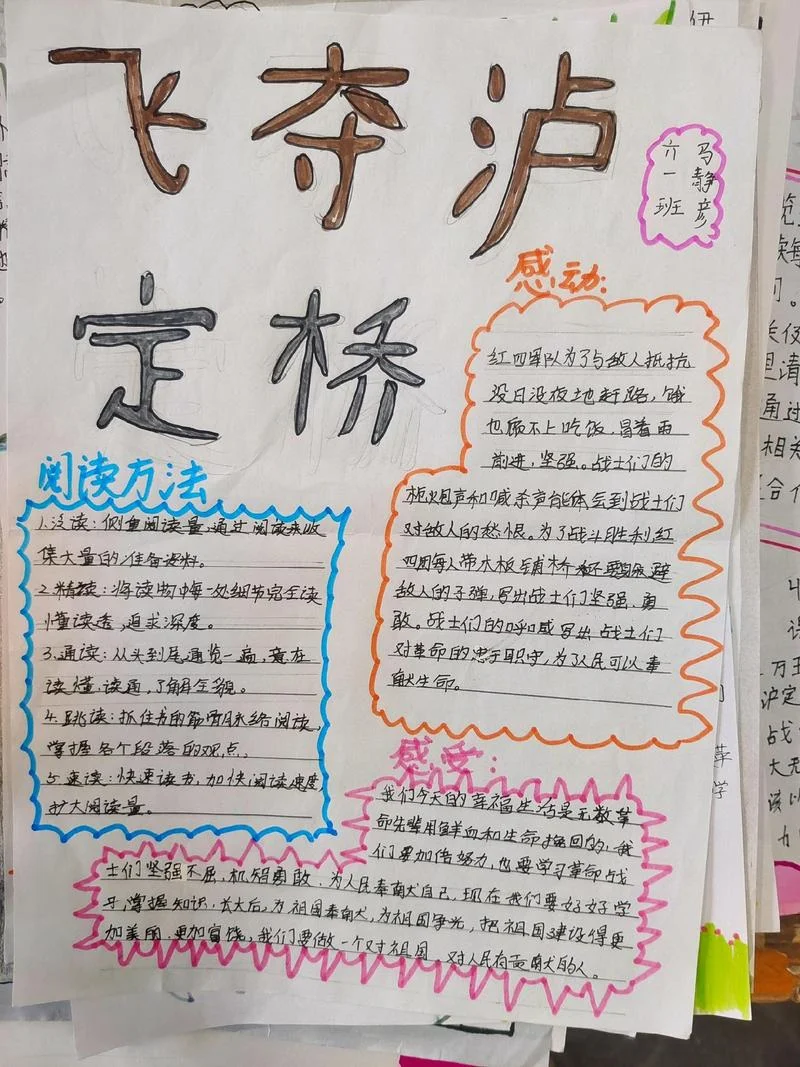 飞夺泸
定桥
六一班
马静彦
感动：
红四军队为了与敌人抵抗
没日没夜地赶路，饿
也顾不上吃饭，冒着雨
前进，坚强。战士们的
枪炮声和喊杀声能体会到战士们
对敌人的愁恨。为了战斗胜利红
四团每人带木板铺桥
敌人的子弹，写出战士们坚强，勇
敢。战士们的呼喊写出战士们
对革命的忠于职守，为了人民可以奉
献生命。
阅读方法
1.泛读：侧重阅读量，通过阅读来收
集大量的准备资料。
2.精读：将读物中每一处细节完全读
懂读透，追求深度。
3.通读：从头到尾通览一遍，意在
读懂，读通，了解全貌。
4.跳读：抓住书的筋骨脉络阅读，
掌握各个段落的观点。
5.速读：快速读书，加快阅读速度
扩大阅读量。
感受：
我们今天的幸福生活是无数革
命先辈用鲜血和生命换回的，我
们要加倍努力，也要学习革命战
士们坚强不屈，机智勇敢，为人民奉献自己，现在我们要好好学
习，掌握知识，长大后，为祖国奉献，为祖国争光，把祖国建设得更
加美丽，更加富饶，我们要做一个对祖国，对人民有贡献的人。